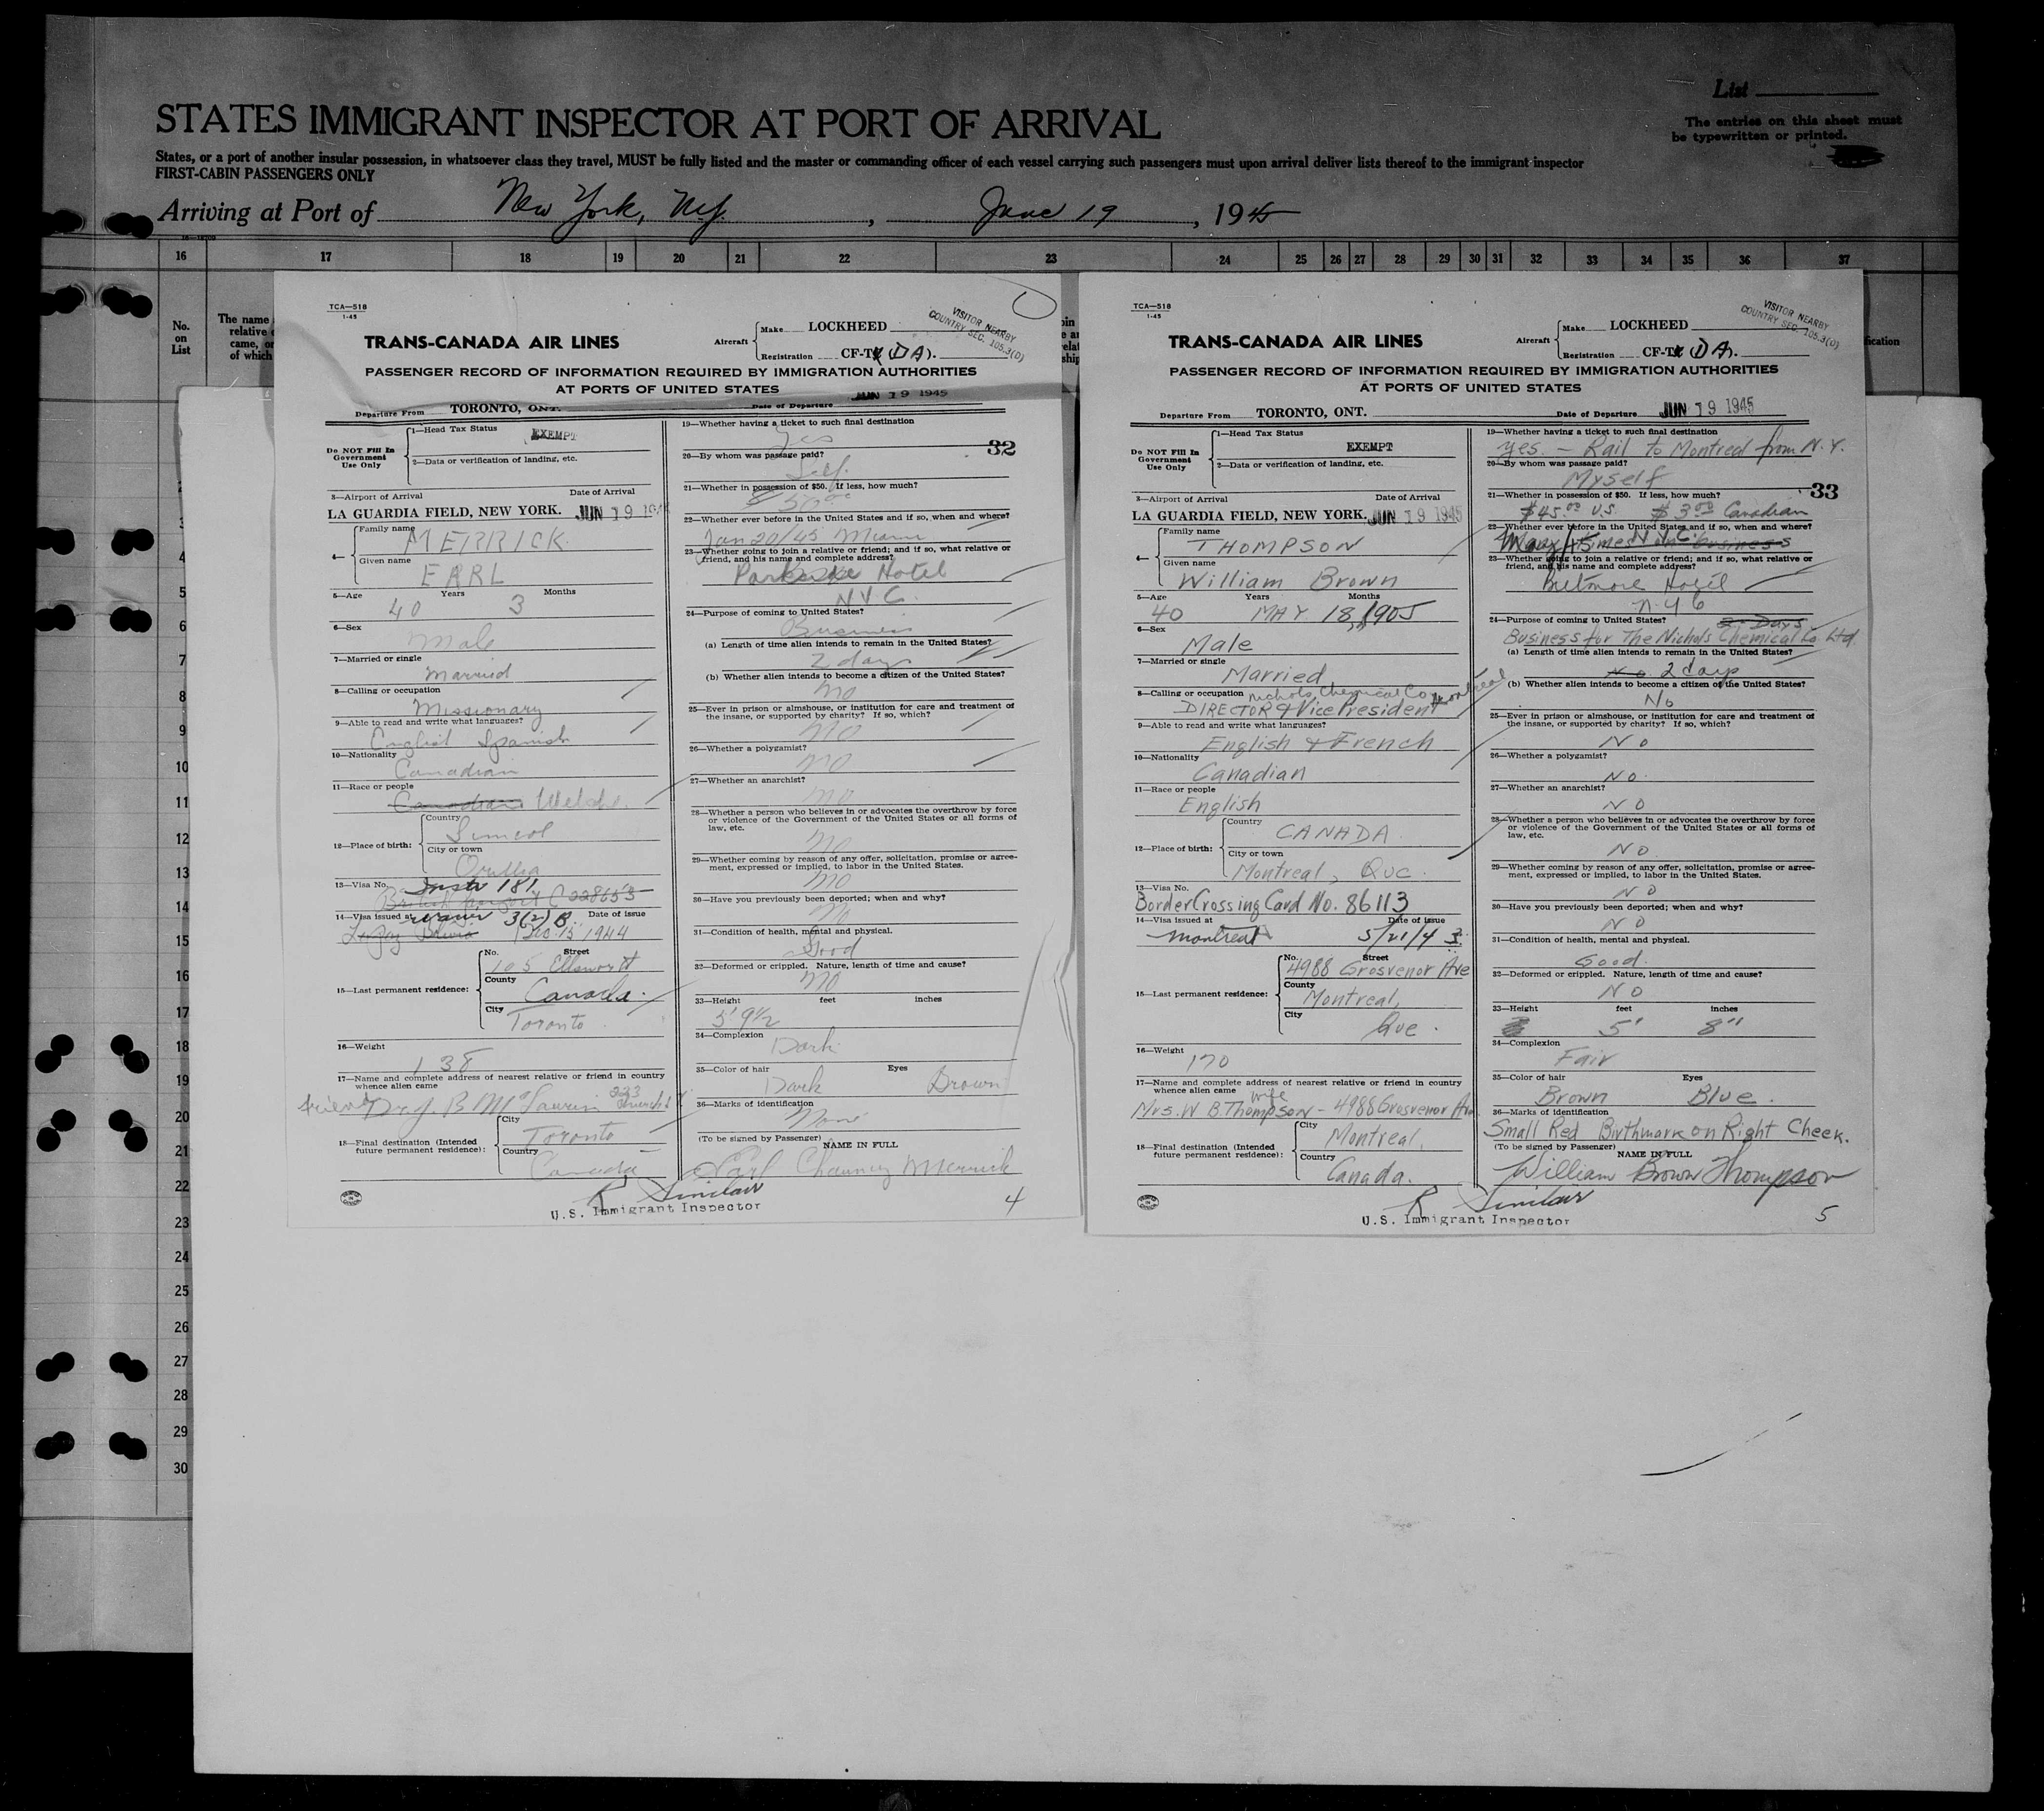 List
STATES IMMIGRANT INSPECTOR AT PORT OF ARRIVAL
The entries on this sheet must
be typewritten or printed.
States, or a port of another insular possession, in whatsoever class they travel, MUST be fully listed and the master or commanding officer of each vessel carrying such passengers must upon arrival deliver lists thereof to the immigrant inspector
FIRST-CABIN PASSENGERS ONLY
Arriving at Port of New York, N.Y. , June 19 , 1945
16 17 18 19 20 21 22 23 24 25 26 27 28 29 30 31 32 33 34 35 36 37
No.
on
List
The name
relative
came, or
of which
TCA-518
1-45
TRANS-CANADA AIR LINES
Aircraft
Make LOCKHEED
Registration CF-T (DA).
VISITOR NEARBY
COUNTRY SEC. 105.3(0)
PASSENGER RECORD OF INFORMATION REQUIRED BY IMMIGRATION AUTHORITIES
AT PORTS OF UNITED STATES
Departure From TORONTO, ONT. Date of Departure JUN 19 1945
Do NOT Fill In
Government
Use Only
1—Head Tax Status EXEMPT
2—Data or verification of landing, etc.
3—Airport of Arrival Date of Arrival
LA GUARDIA FIELD, NEW YORK. JUN 19 194
4—
Family name
MERRICK
Given name
EARL
5—Age Years Months
40 3
6—Sex
Male
7—Married or single
Married
8—Calling or occupation
Missionary
9—Able to read and write what languages?
English Spanish
10—Nationality
Canadian
11—Race or people
Canadian Welsh.
12—Place of birth:
Country
Simcol
City or town
Orillia
13—Visa No. Instr 181
British passport C 228653
14—Visa issued at waiver 3(2) B. Date of issue
La Paz Bolivia Dec. 15 1944
15—Last permanent residence:
No. Street
105 Ellsworth
County
Canada.
City
Toronto
16—Weight
138
17—Name and complete address of nearest relative or friend in country
whence alien came
friend Dr J. B McLaurin 223 Church St
18—Final destination (Intended
future permanent residence):
City
Toronto
Country
Canada
19—Whether having a ticket to such final destination
Yes
32
20—By whom was passage paid?
Self.
21—Whether in possession of $50. If less, how much?
$ 50.00
22—Whether ever before in the United States and if so, when and where?
Jan 20/45 Miami
23—Whether going to join a relative or friend; and if so, what relative or
friend, and his name and complete address?
Hotel
NYC.
24—Purpose of coming to United States?
Business
(a) Length of time alien intends to remain in the United States?
2 days
(b) Whether alien intends to become a citizen of the United States?
No
25—Ever in prison or almshouse, or institution for care and treatment of
the insane, or supported by charity? If so, which?
No
26—Whether a polygamist?
No
27—Whether an anarchist?
No
28—Whether a person who believes in or advocates the overthrow by force
or violence of the Government of the United States or all forms of
law, etc.
No
29—Whether coming by reason of any offer, solicitation, promise or agree-
ment, expressed or implied, to labor in the United States.
No
30—Have you previously been deported; when and why?
No
31—Condition of health, mental and physical.
Good
32—Deformed or crippled. Nature, length of time and cause?
No
33—Height feet inches
5' 9½
34—Complexion
Dark
35—Color of hair Eyes
Dark Brown
36—Marks of identification
None
(To be signed by Passenger) NAME IN FULL
Earl Chauncy Merrick
R Sinclair
U.S. Immigrant Inspector
4
TCA-518
1-45
TRANS-CANADA AIR LINES
Aircraft
Make LOCKHEED
Registration CF-T (DA).
VISITOR NEARBY
COUNTRY SEC. 105.3(0)
PASSENGER RECORD OF INFORMATION REQUIRED BY IMMIGRATION AUTHORITIES
AT PORTS OF UNITED STATES
Departure From TORONTO, ONT. Date of Departure JUN 19 1945
Do NOT Fill In
Government
Use Only
1—Head Tax Status EXEMPT
2—Data or verification of landing, etc.
3—Airport of Arrival Date of Arrival
LA GUARDIA FIELD, NEW YORK. JUN 19 1945
4—
Family name
THOMPSON
Given name
William Brown
5—Age Years Months
40 MAY 18, 1905
6—Sex
Male
7—Married or single
Married
8—Calling or occupation Nichols Chemical Co. Montreal
DIRECTOR & Vice President
9—Able to read and write what languages?
English & French
10—Nationality
Canadian
11—Race or people
English
12—Place of birth:
Country
CANADA.
City or town
Montreal, Quc.
13—Visa No.
Border Crossing Card No. 86113
14—Visa issued at Date of issue
Montreal 5/21/43
15—Last permanent residence:
No. Street
4988 Grosvenor Ave
County
Montreal,
City
Que.
16—Weight
170
17—Name and complete address of nearest relative or friend in country
whence alien came
wife
Mrs. W B. Thompson - 4988 Grosvenor Ave
18—Final destination (Intended
future permanent residence):
City
Montreal.
Country
Canada.
19—Whether having a ticket to such final destination
yes. - Rail to Montreal from N.Y.
20—By whom was passage paid?
Myself
33
21—Whether in possession of $50. If less, how much?
$45.00 U.S. $3.00 Canadian
22—Whether ever before in the United States and if so, when and where?
Many times on business
N.Y.C.
23—Whether going to join a relative or friend; and if so, what relative or
friend, and his name and complete address?
Biltmore Hotel
N.Y.C
24—Purpose of coming to United States? 2 Days
Business for The Nichols Chemical Co Ltd
(a) Length of time alien intends to remain in the United States?
2 days
(b) Whether alien intends to become a citizen of the United States?
No
25—Ever in prison or almshouse, or institution for care and treatment of
the insane, or supported by charity? If so, which?
No
26—Whether a polygamist?
No.
27—Whether an anarchist?
No
28—Whether a person who believes in or advocates the overthrow by force
or violence of the Government of the United States or all forms of
law, etc.
No
29—Whether coming by reason of any offer, solicitation, promise or agree-
ment, expressed or implied, to labor in the United States.
No
30—Have you previously been deported; when and why?
No
31—Condition of health, mental and physical.
Good.
32—Deformed or crippled. Nature, length of time and cause?
No
33—Height feet inches
5' 8"
34—Complexion
Fair
35—Color of hair Eyes
Brown Blue.
36—Marks of identification
Small Red Birthmark on Right Cheek.
(To be signed by Passenger) NAME IN FULL
William Brown Thompson
R Sinclair
U.S. Immigrant Inspector
5
3
4
5
6
7
8
9
10
11
12
13
14
15
16
17
18
19
20
21
22
23
24
25
26
27
28
29
30